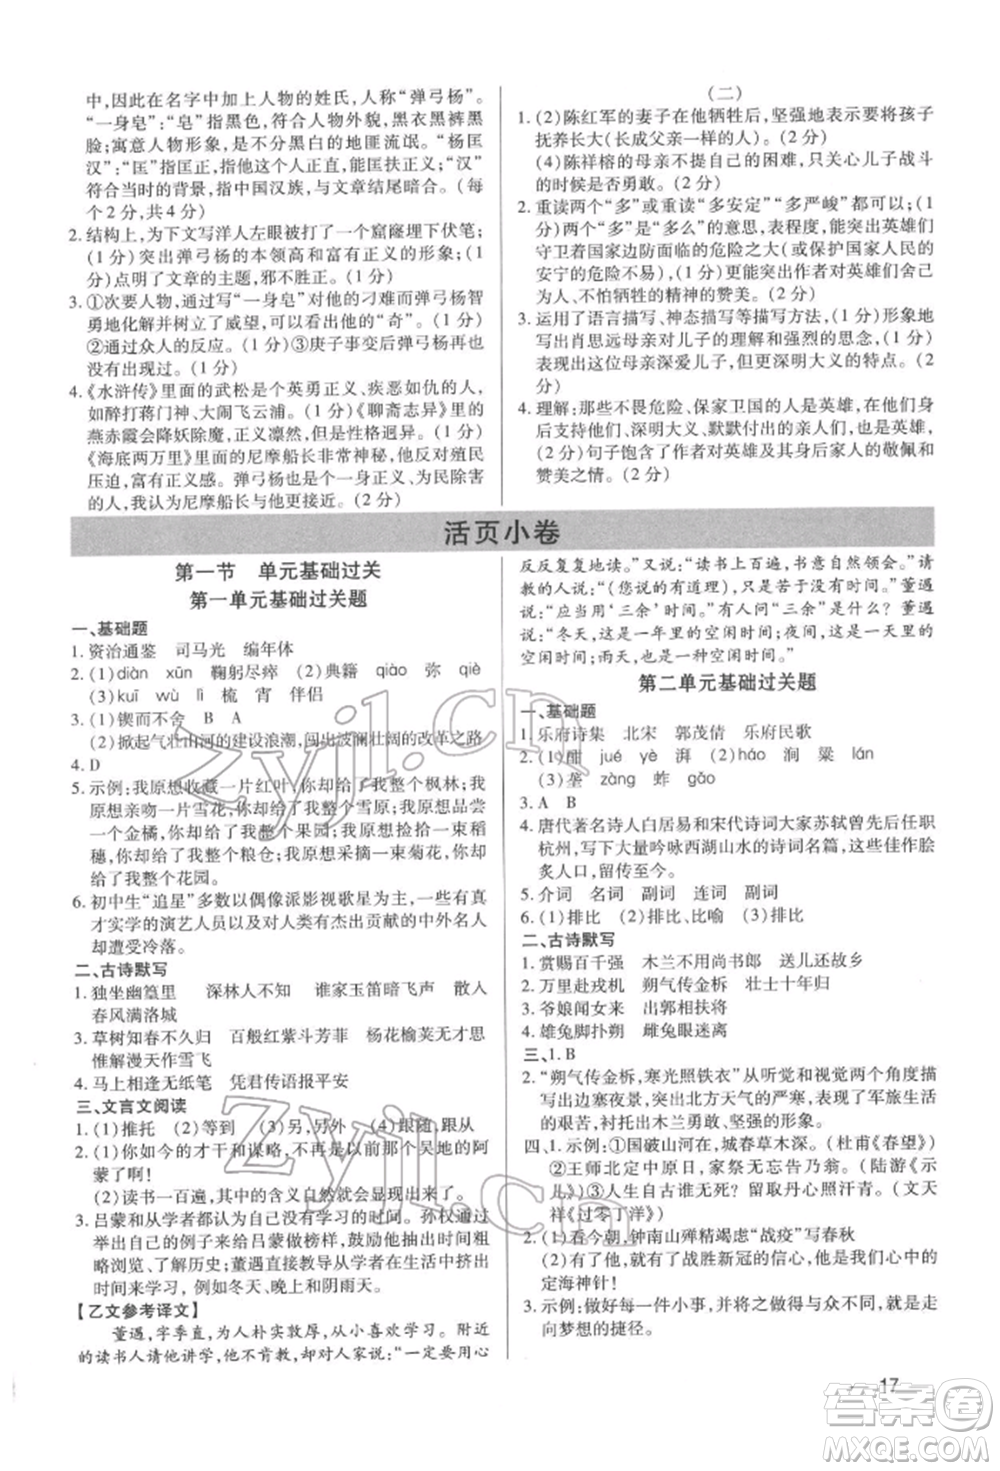 中,因此在名字中加上人物的姓氏,人称“弹弓杨”。
“一身皂”:“皂”指黑色,突出人物外貌,黑衣黑
脸;寓意人物形象,指黑白黑的地匪流氓。“杨匡
汉”:“匡”指匡正,是指这个人正直,能匡扶正义;“汉”
符合当时的背景,指中国汉族,与文章结尾暗合。(每
个2分,共4分)
2. 结构上,为下文写洋人左眼被打了一个窟窿埋下伏笔;
(1分)突出弹弓杨的本领高和富有正义的形象;(1
分)点明了文章的主题,邪不胜正。(1分)
3. ①次要人物,通过写“一身皂”对他的刁难而弹弓杨智
勇地化解并树立了威望,可以看出他的“奇”。(1分)
②通过众人的反应。(1分)③庚子事变后弹弓杨再也
没有出现过。(1分)
4. 《水浒传》里面的武松是个英勇正义、疾恶如仇的人,
如醉打蒋门神、大闹飞云浦。(1分)《聊斋志异》里的
燕赤霞会降妖除魔,正义凛然,但是性格迥异。(1分)
《海底两万里》里的尼摩船长非常神秘,他反抗殖民
压迫,富有正义感。弹弓杨富有正义感,为民除害的
行为与尼摩船长更为接近。(2分)
(二)
1. (2)陈红军的妻子在他牺牲后,坚强地表示要将孩子
抚养长大(长成父亲一样的人)。(2分)
(4)陈祥榕的母亲不提自己的困难,只关心儿子战斗
的时候是否勇敢。(2分)
2. 重读两个“多”或重读“多安定”“多严峻”都可以;(1
分)两个“多”是“多么”的意思,直接突出英雄们
守卫着国家边防面临的危险之大(或保护国家人民的
安宁的危险不易);(1分)表达了作者对英雄们舍生
忘死、不怕牺牲的精神的赞美。(2分)
3. 运用了语言描写、神态描写等描写方法,(1分)形象地
写出肖思远母亲对儿子的理解和强烈的思念,(1分)
突出了这位母亲深爱儿子、深明大义的特点。(2
分)
4. 理解:那些不畏危险、保家卫国的人是英雄,在英雄身
后支持他们、深明大义、默默付出的亲人们,也是英雄,
(2分)句子饱含了作者对英雄及其身后家人的敬佩和
赞美之情。(2分)
活页小卷
第一节 单元基础过关
第一单元基础过关题
一、基础题
1. 资治通鉴 司马光 编年体
2. (1)diàn xūn 鞠躬尽瘁 (2)典籍 qiào 弥 qiè
(3)kuī wù lì 梳 宵 伴侣
3. (1)锲而不舍 B A
(2)掀起气壮山河的建设浪潮,闯出波澜壮阔的改革之路
4. D
5. 示例:我原想收藏一片红叶,你却给了我整个枫林;我
原想亲吻一片雪花,你却给了我整个雪原;我原想品尝
一个金橘,你却给了我整个果园;我原想拾起一束稻
穗,你却给了我整个田野;我原想采摘一束菊花,你却
给了我整个花园。
6. 初中生“追星”多数以偶像派影视歌星为主,而一些有真
才实学的演艺人员以及对人类有杰出贡献的中外名人
却遭受冷落。
二、古诗默写
1. 独坐幽篁里 深林人不知 谁家玉笛暗飞声 散入
春风满洛城
3. 草树知春不久归 百般红紫斗芳菲 杨花榆荚无才思
惟解漫天作雪飞
4. 马上相逢无纸笔 凭君传语报平安
三、文言文阅读
1. (1)推托 (2)等到 (3)另,另外 (4)跟随、跟从
2. (1)你如今的才干和谋略,不再是以前的吴地的阿
蒙了!
(2)读书一百遍,其中的含义自然就显现出来了。
3. 吕蒙和从学者都认为没有学习的时间。孙权通过
自己的例子来给吕蒙做榜样,让其抽出时间学习典
籍、了解历史;董遇引导从学者在生活中挤出点滴
时间来学习,例如冬天、晚上和阴雨天。
【乙文参考译文】
董遇,字季直,为人朴实敦厚,从小喜欢学习。附近
的读书人请他讲学,他不肯教,却对人家说:“一定要用心
反反复复地读。”又说:“读书上百遍,书意自然领会。”请
教的人说:“(您说的有道理),只是苦于没有时间。”董遇
说:“应当用‘三余’时间。”有人问“三余”是什么?董遇
说:“冬天,这是一年里的空闲时间;夜间,这是一天里的
空闲时间;雨天,也是一种空闲时间。”
第二单元基础过关题
一、基础题
1. 乐府诗集 北宋 郭茂倩 乐府民歌
2. (1)酣 jué yè 湃 (2)háo 涧 粱 lán
(3)垄 zàng 蚱 gǎo
3. A B
4. 唐代著名诗人白居易和宋代诗词大家苏轼曾先后任职
杭州,写下大量吟咏西湖山水的诗词名篇,这些佳作脍
炙人口,留传至今。
5. 介词 名词 副词 连词 副词
6. (1)排比 (2)排比、比喻 (3)排比
二、古诗默写
1. 赏赐百千强 木兰不用尚书郎 送儿还故乡
2. 万里赴戎机 朔气传金柝 壮士十年归
3. 爷娘闻女来 出郭相扶将
4. 雄兔脚扑朔 雌兔眼迷离
三、1. B
2. “朔气传金柝,寒光照铁衣”从听觉和视觉两个角度描
写出边塞夜景,突出了北方天气的寒冷,表现了军旅生活
的艰苦,衬托出木兰勇敢、坚强的形象。
四、1. 示例:①国破山河在,城春草木深。(杜甫《春望》)
②王师北定中原日,家祭无忘告乃翁。(陆游《示
儿》)③人生自古谁无死?留取丹心照汗青。(文天
祥《过零丁洋》)
2. (1)看今朝,钟南山殚精竭虑“战疫”写春秋
(2)有了他,就有了战胜新冠的信心,他是人们心中的
定海神针!
3. 示例:做好每一件小事,上天会让做得与众不同,就是走
向梦想的捷径。
17
zyjl.cn
zyjl.cn
答案圈
MXQE.COM